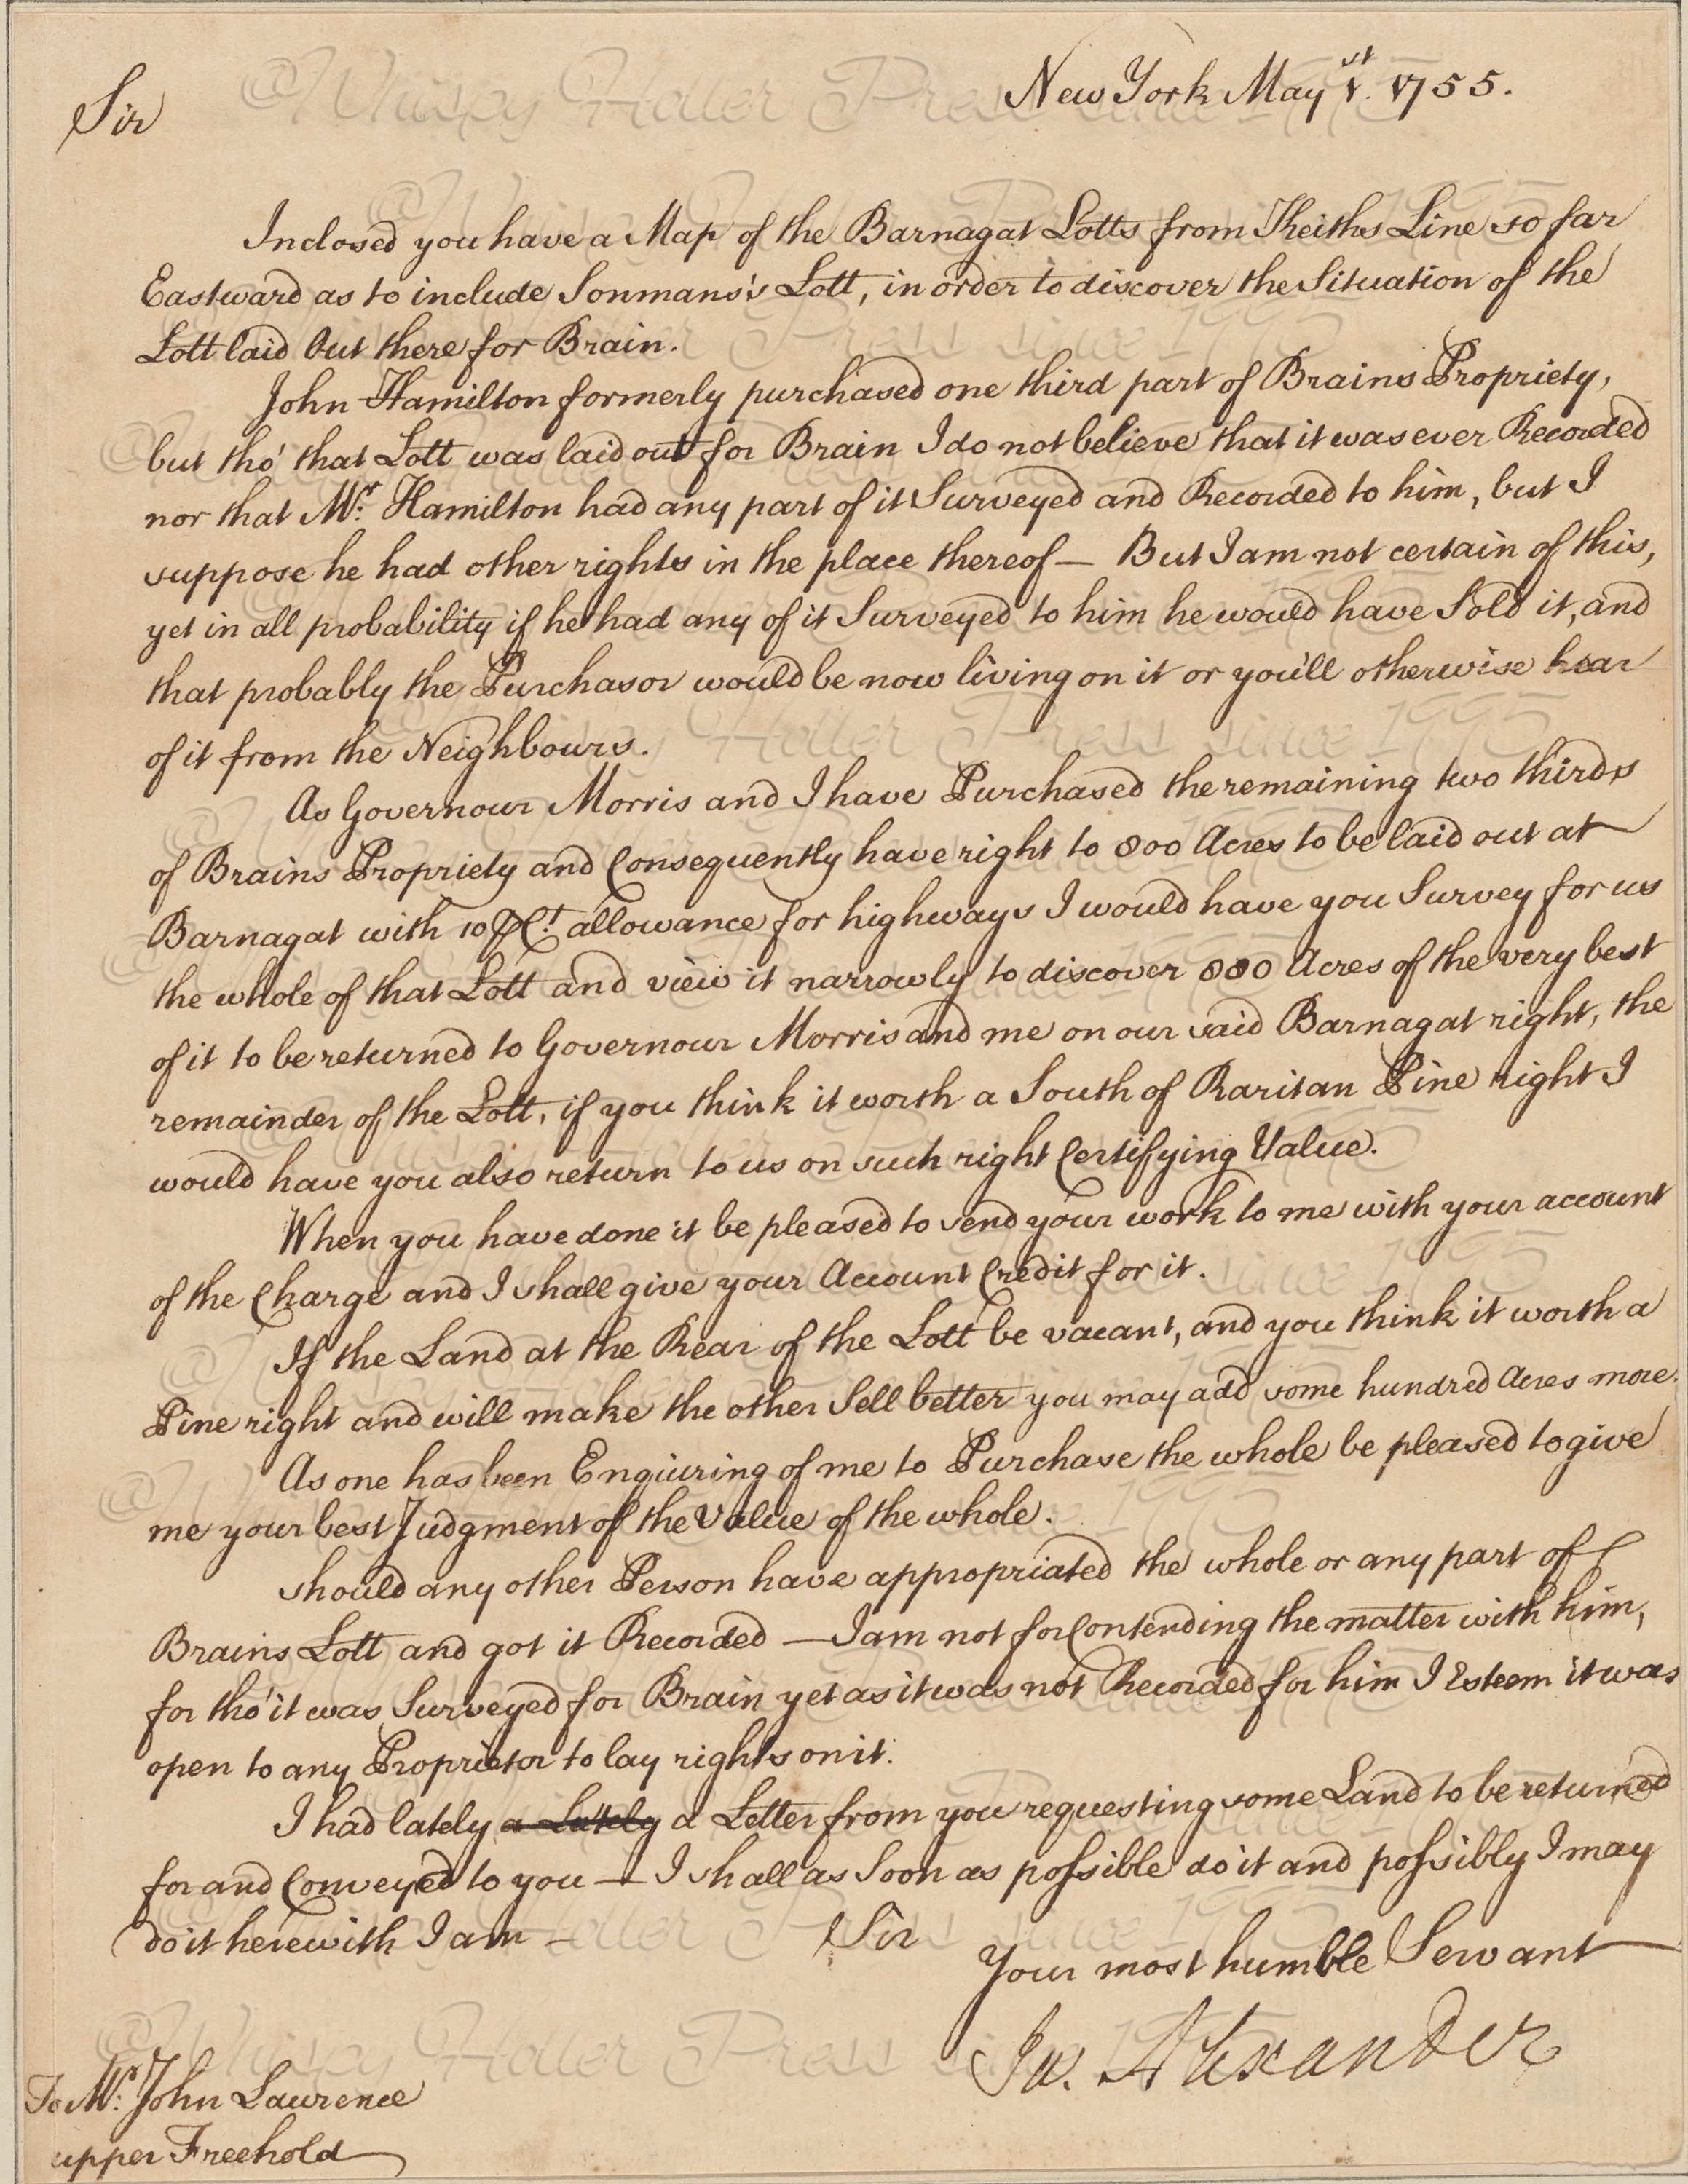 New York May 1.st 1755.
Sir
Inclosed you have a Map of the Barnagat Lotts from Keiths Line so far
Eastward as to include Sonmans's Lott, in order to discover the Situation of the
Lott laid Out there for Brain.
John Hamilton formerly purchased one third part of Brains Propriety,
but tho' that Lott was laid out for Brain I do not believe that it was ever Recorded
nor that Mr. Hamilton had any part of it Surveyed and Recorded to him, but I
suppose he had other rights in the place thereof — But I am not certain of this,
yet in all probability if he had any of it Surveyed to him he would have Sold it, and
that probably the Purchasor would be now living on it or you'll otherwise hear
of it from the Neighbours.
As Governour Morris and I have Purchased the remaining two thirds
of Brains Propriety and Consequently have right to 800 Acres to be laid out at
Barnagat with 10 P Ct. allowance for highways I would have you Survey for us
the whole of that Lott and view it narrowly to discover 880 Acres of the very best
of it to be returned to Governour Morris and me on our said Barnagat right, the
remainder of the Lott, if you think it worth a South of Raritan Pine right I
would have you also return to us on such right Certifying Value.
When you have done it be pleased to send your work to me with your account
of the Charge and I shall give your Account Credit for it.
If the Land at the Rear of the Lott be vacant, and you think it worth a
Pine right and will make the other Sell better you may add some hundred Acres more.
As one has been Enquiring of me to Purchase the whole be pleased to give
me your best Judgment of the Value of the whole.
should any other Person have appropriated the whole or any part of
Brains Lott and got it Recorded — I am not for Contending the matter with him,
for tho' it was Surveyed for Brain yet as it was not Recorded for him I Esteem it was
open to any Proprietor to lay rights on it.
I had lately a Lately a Letter from you requesting some Land to be returned
for and Conveyed to you — I shall as Soon as poſsible do it and poſsibly I may
do it herewith I am — Sir
Your most humble Servant
Ja. Alexander
To Mr. John Lawrence
upper Freehold